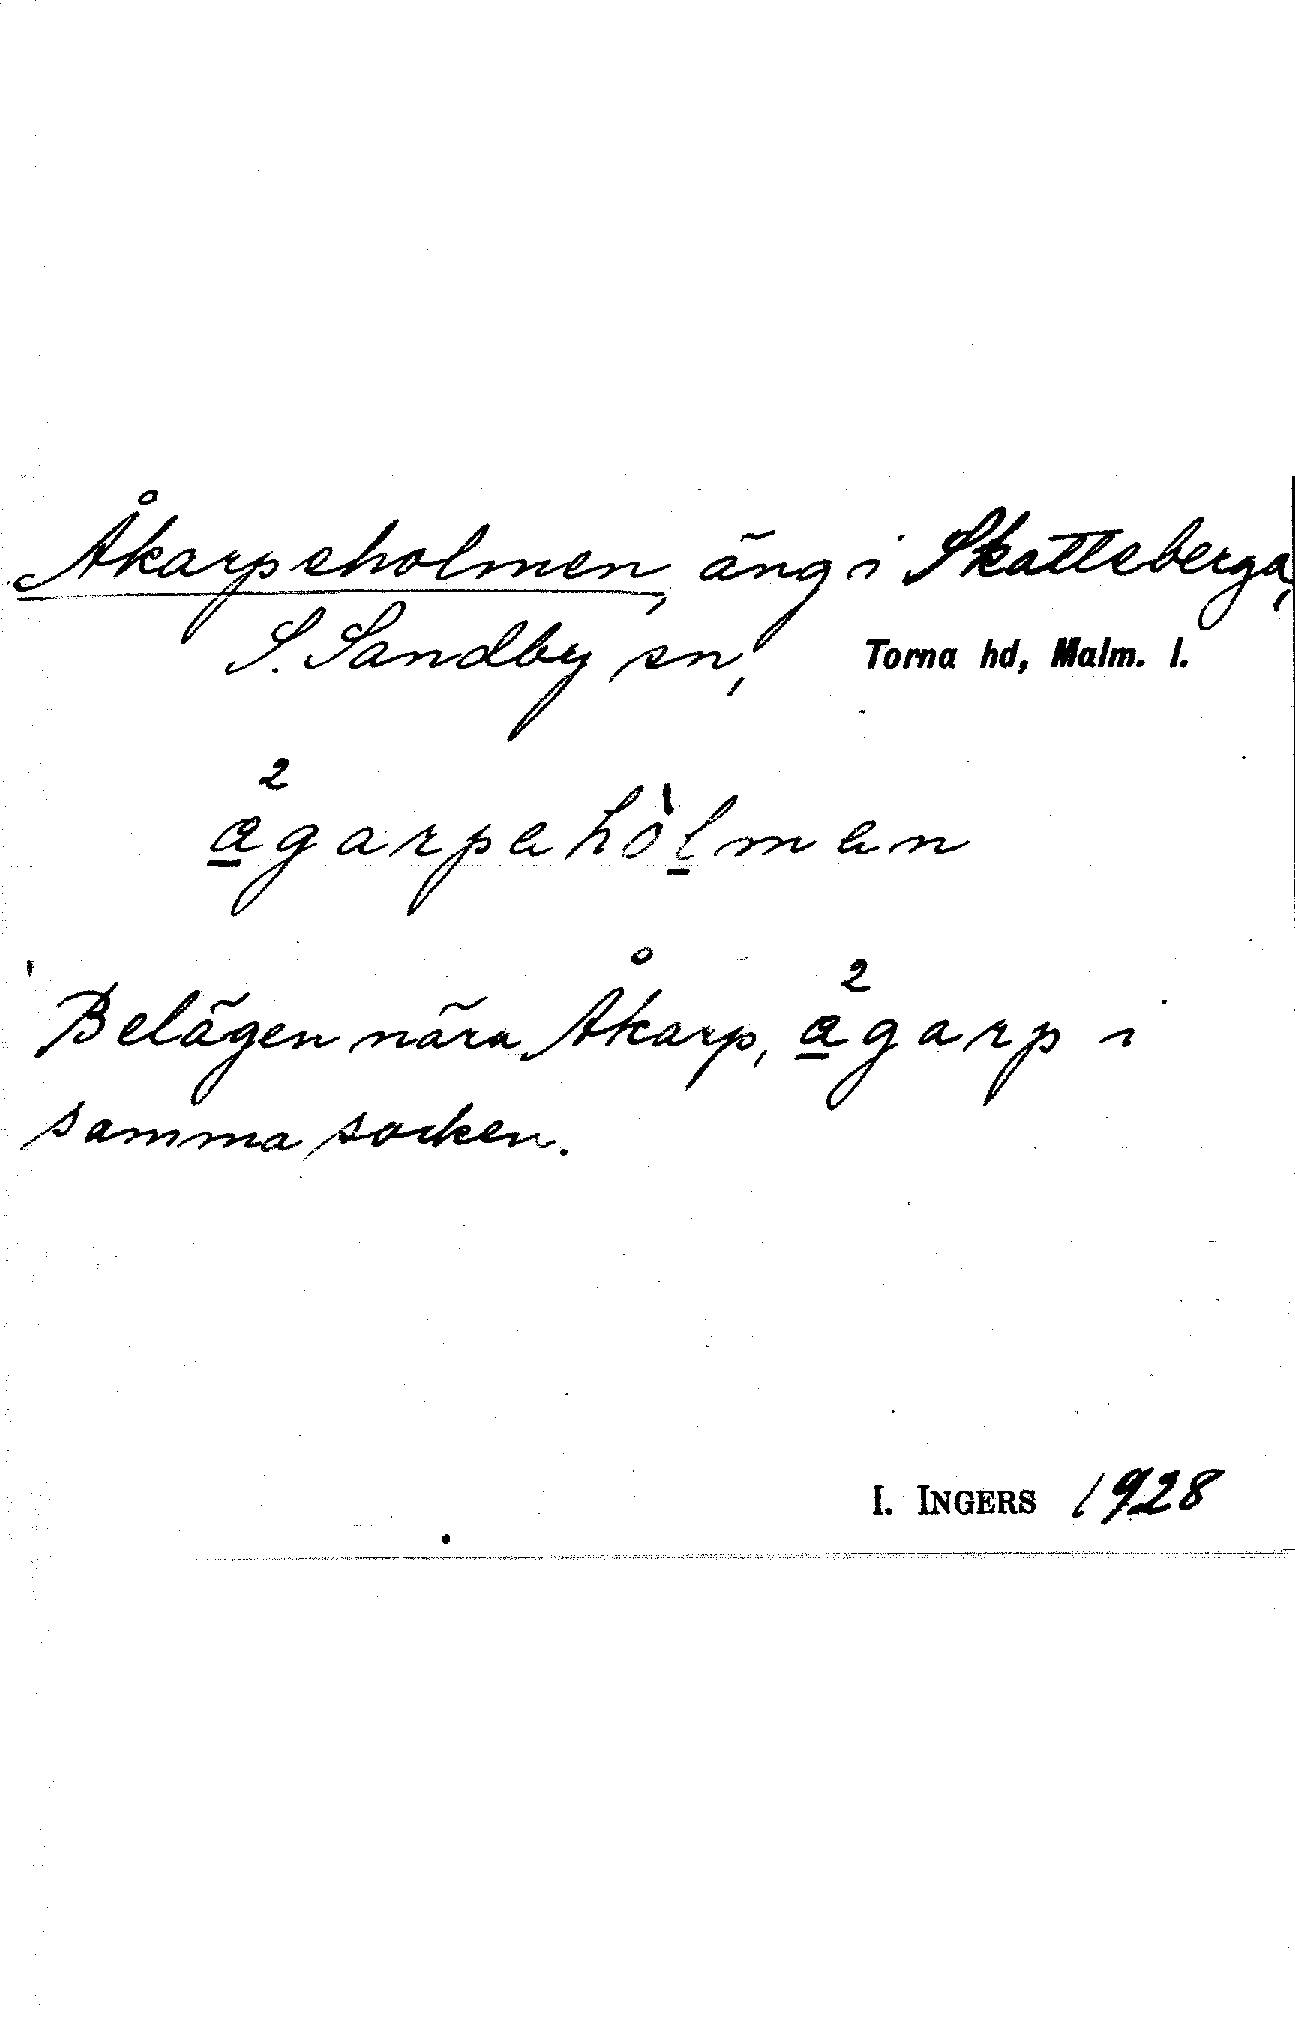 Åkarpeholmen, äng i Skatteberga,
S. Sandby sn, Torna hd, Malm. l.
a̲²garpahòl̲man
Belägen nära Åkarp, a̲²garp i
samma socken.
I. INGERS 1928